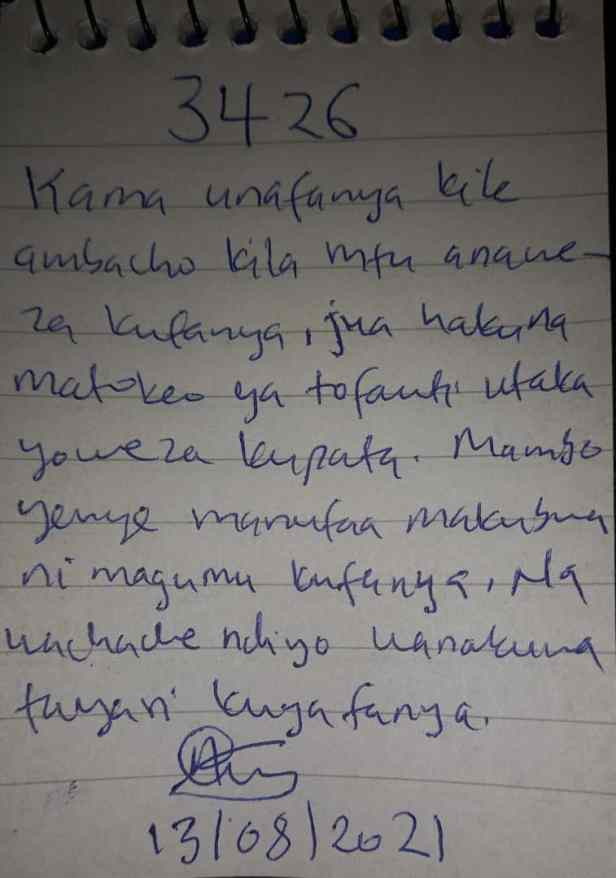 3426
Kama unafanya kile
ambacho kila mtu anawe-
za kufanya, jua hakuna
matokeo ya tofauti utaka
yoweza kupata. Mambo
yenye manufaa makubwa
ni magumu kufanya, Na
wachache ndiyo wanakuwa
tayari kuyafanya.
13/08/2021